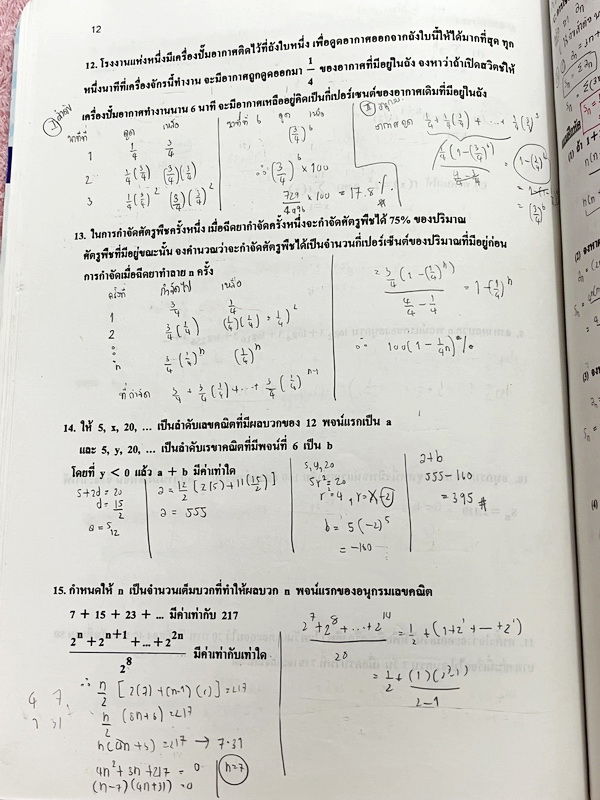 12
12. โรงงานแห่งหนึ่งมีเครื่องปั๊มอากาศติดไว้ที่ถังใบหนึ่ง เพื่อดูดอากาศออกจากถังใบนี้ให้ได้มากที่สุด ทุก
หนึ่งนาทีที่เครื่องจักรนี้ทำงาน จะมีอากาศถูกดูดออกมา 1/4 ของอากาศที่มีอยู่ในถัง จงหาว่าถ้าเปิดสวิตช์ให้
เครื่องปั๊มอากาศทำงานนาน 6 นาที จะมีอากาศเหลืออยู่คิดเป็นกี่เปอร์เซนต์ของอากาศเดิมที่มีอยู่ในถัง
นาทีที่ ดูด เหลือ
1 1/4 3/4
2 1/4(3/4) (3/4)(3/4)
3 1/4(3/4)² (3/4)(3/4)²
นาทีที่ 6 ดูด เหลือ
(3/4)⁶
∴ (3/4)⁶ × 100
729/4096 × 100 = 17.8 %
13. ในการกำจัดศัตรูพืชครั้งหนึ่ง เมื่อฉีดยากำจัดครั้งหนึ่งจะกำจัดศัตรูพืชได้ 75% ของปริมาณ
ศัตรูพืชที่มีอยู่ขณะนั้น จงคำนวณว่าจะกำจัดศัตรูพืชได้เป็นจำนวนกี่เปอร์เซ็นต์ของปริมาณที่มีอยู่ก่อน
การกำจัดเมื่อฉีดยาทำลาย n ครั้ง
ครั้งที่ กำจัดไป เหลือ
1 3/4 1/4
2 3/4(1/4) (1/4)(1/4) = (1/4)²
n 3/4(1/4)ⁿ (1/4)ⁿ
ที่กำจัด 3/4 + 3/4(1/4) + ... + 3/4(1/4)ⁿ⁻¹
= 3/4(1-(1/4)ⁿ) / (4/4 - 1/4) = 1-(1/4)ⁿ
∴ 100(1 - 1/4ⁿ) %
14. ให้ 5, x, 20, ... เป็นลำดับเลขคณิตที่มีผลบวกของ 12 พจน์แรกเป็น a
และ 5, y, 20, ... เป็นลำดับเรขาคณิตที่มีพจน์ที่ 6 เป็น b
โดยที่ y < 0 แล้ว a + b มีค่าเท่าใด
5+2d = 20
d = 15/2
a = S₁₂
a = 12/2 [2(5) + 11(15/2)]
a = 555
5, y, 20
5r² = 20
r² = 4, r = 2, -2
b = 5(-2)⁵
= -160
a+b
555-160
= 395 #
15. กำหนดให้ n เป็นจำนวนเต็มบวกที่ทำให้ผลบวก n พจน์แรกของอนุกรมเลขคณิต
7 + 15 + 23 + ... มีค่าเท่ากับ 217
(2ⁿ + 2ⁿ⁺¹ + ... + 2²ⁿ) / 2⁸ มีค่าเท่ากับเท่าใด
∴ n/2 [2(7) + (n-1)(8)] = 217
n/2 (8n+6) = 217
n(4n+3) = 217 → 7·31
4n²+3n+217 = 0
(n-7)(4n+31) = 0
n=7